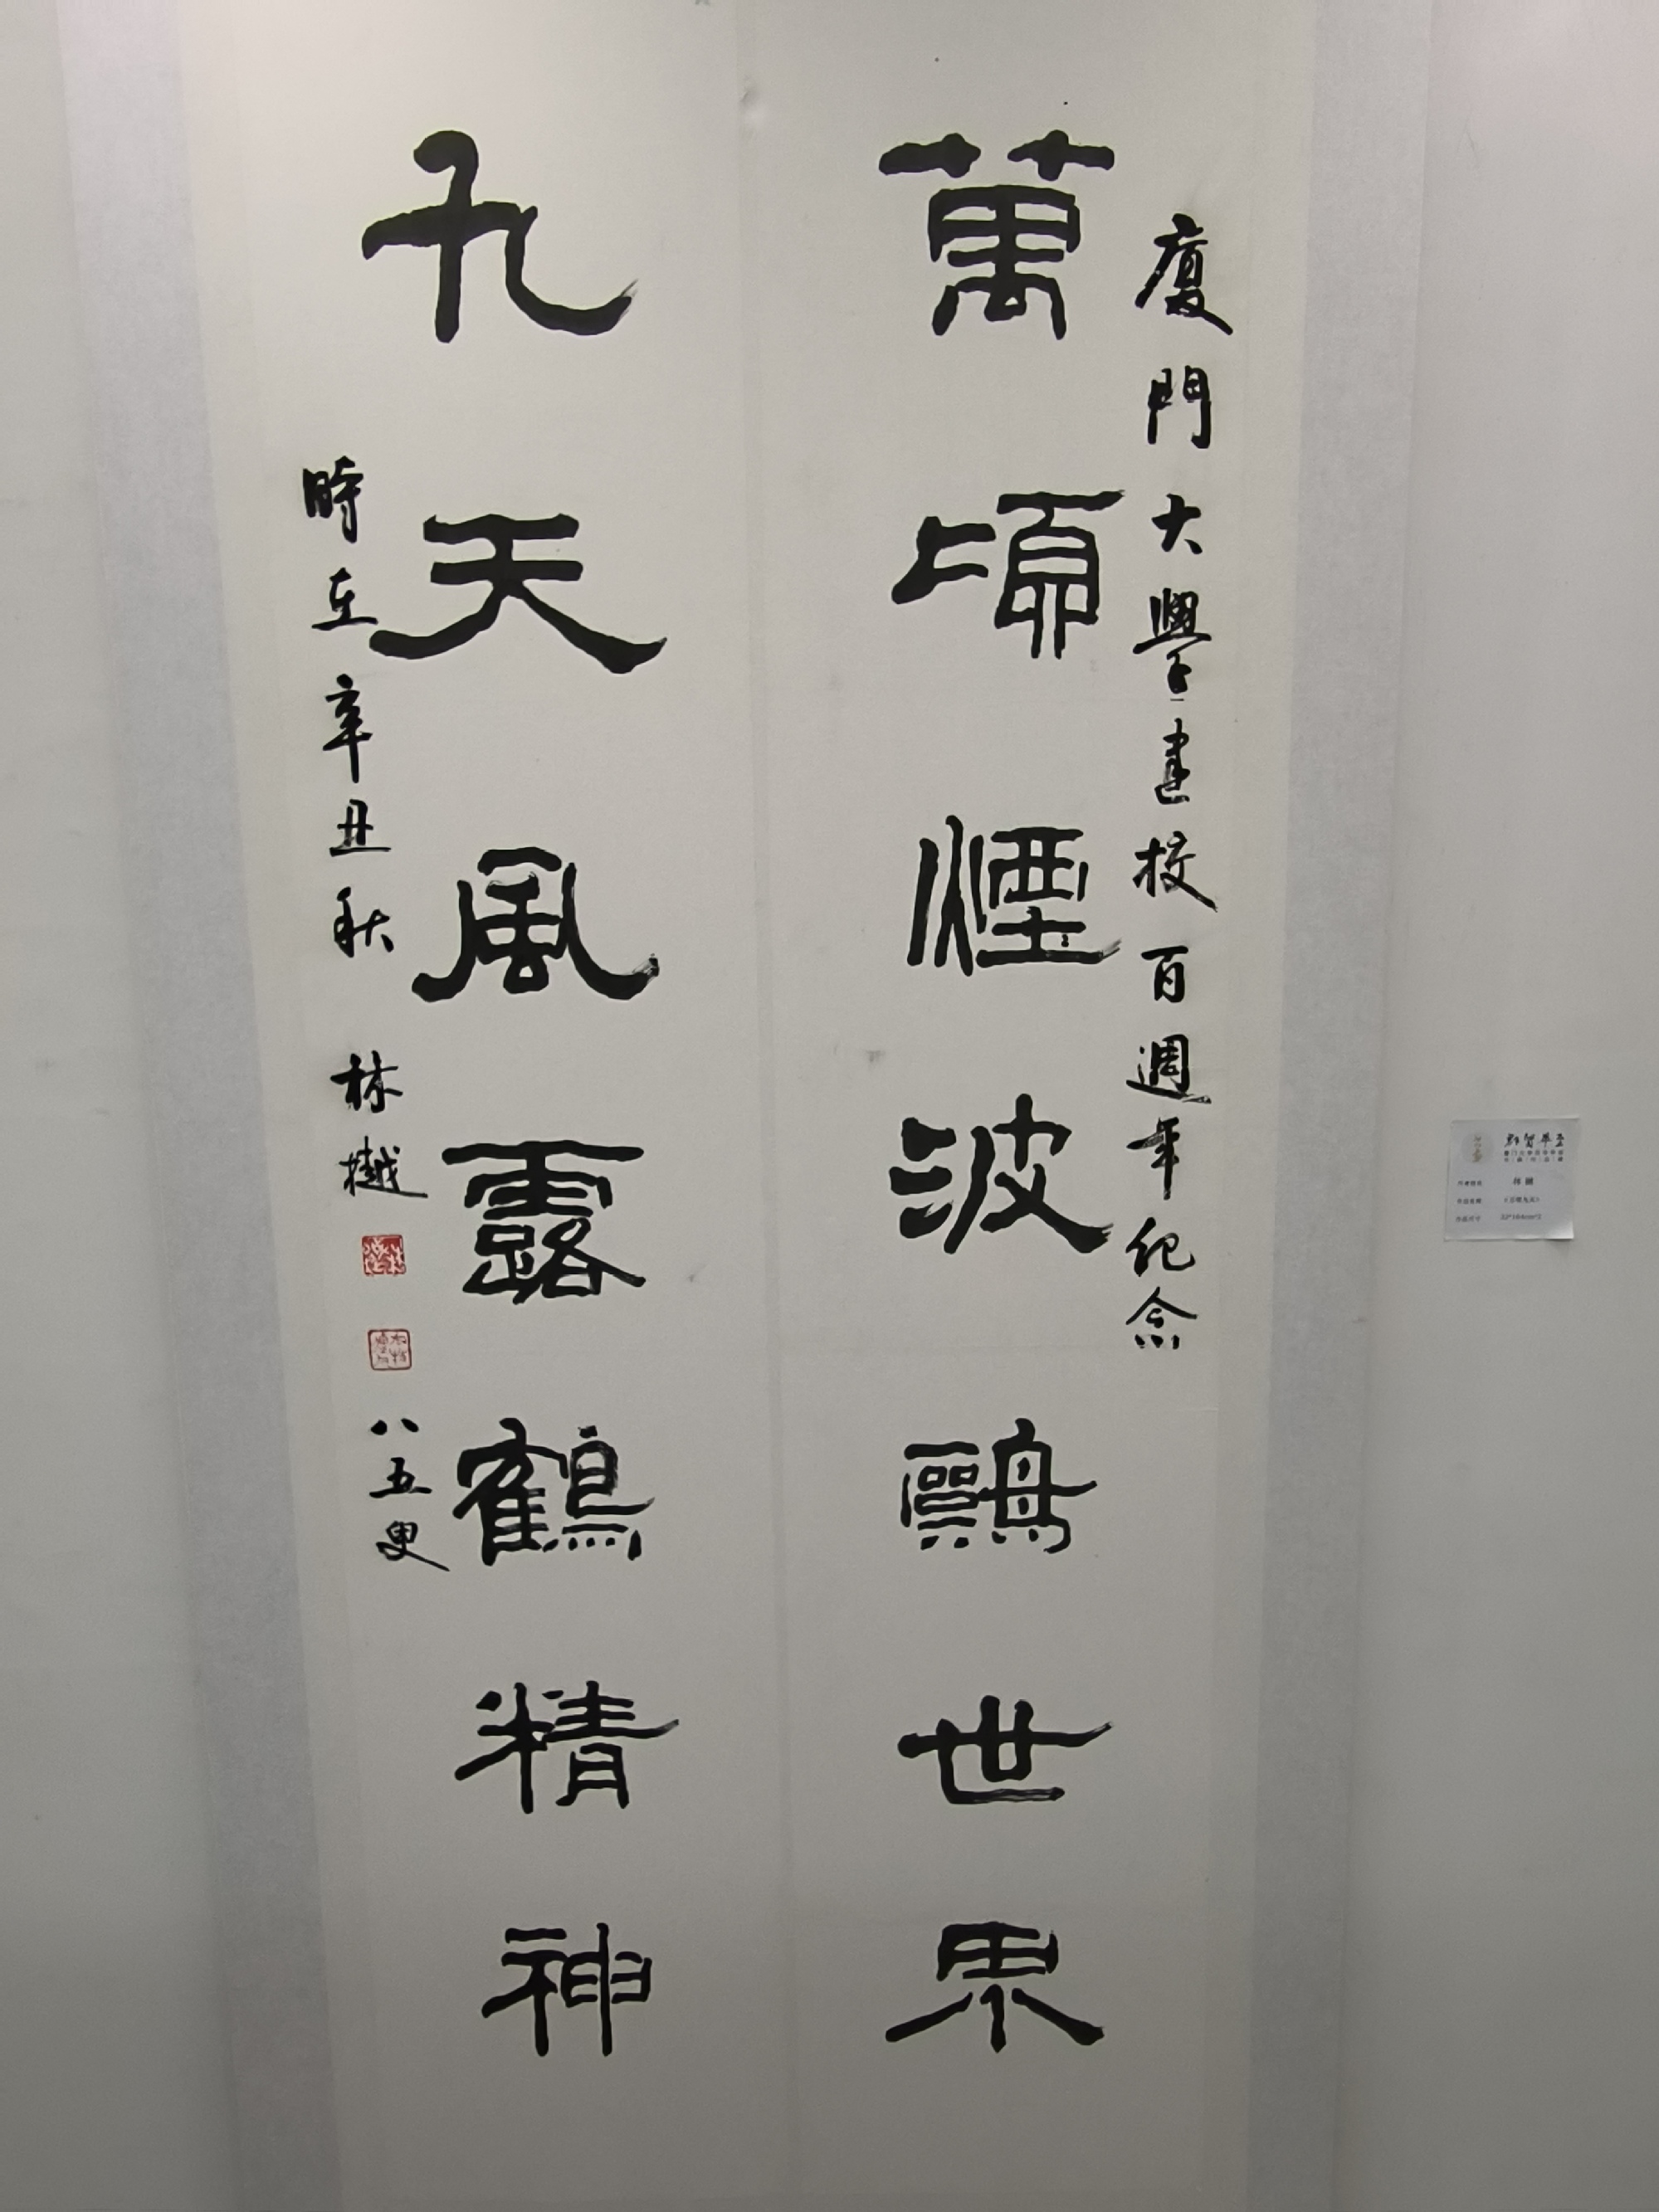 廈門大學建校百週年纪念
萬頃煙波鷗世界
九天風露鶴精神
時在辛丑秋 林樾
八五叟
林樾